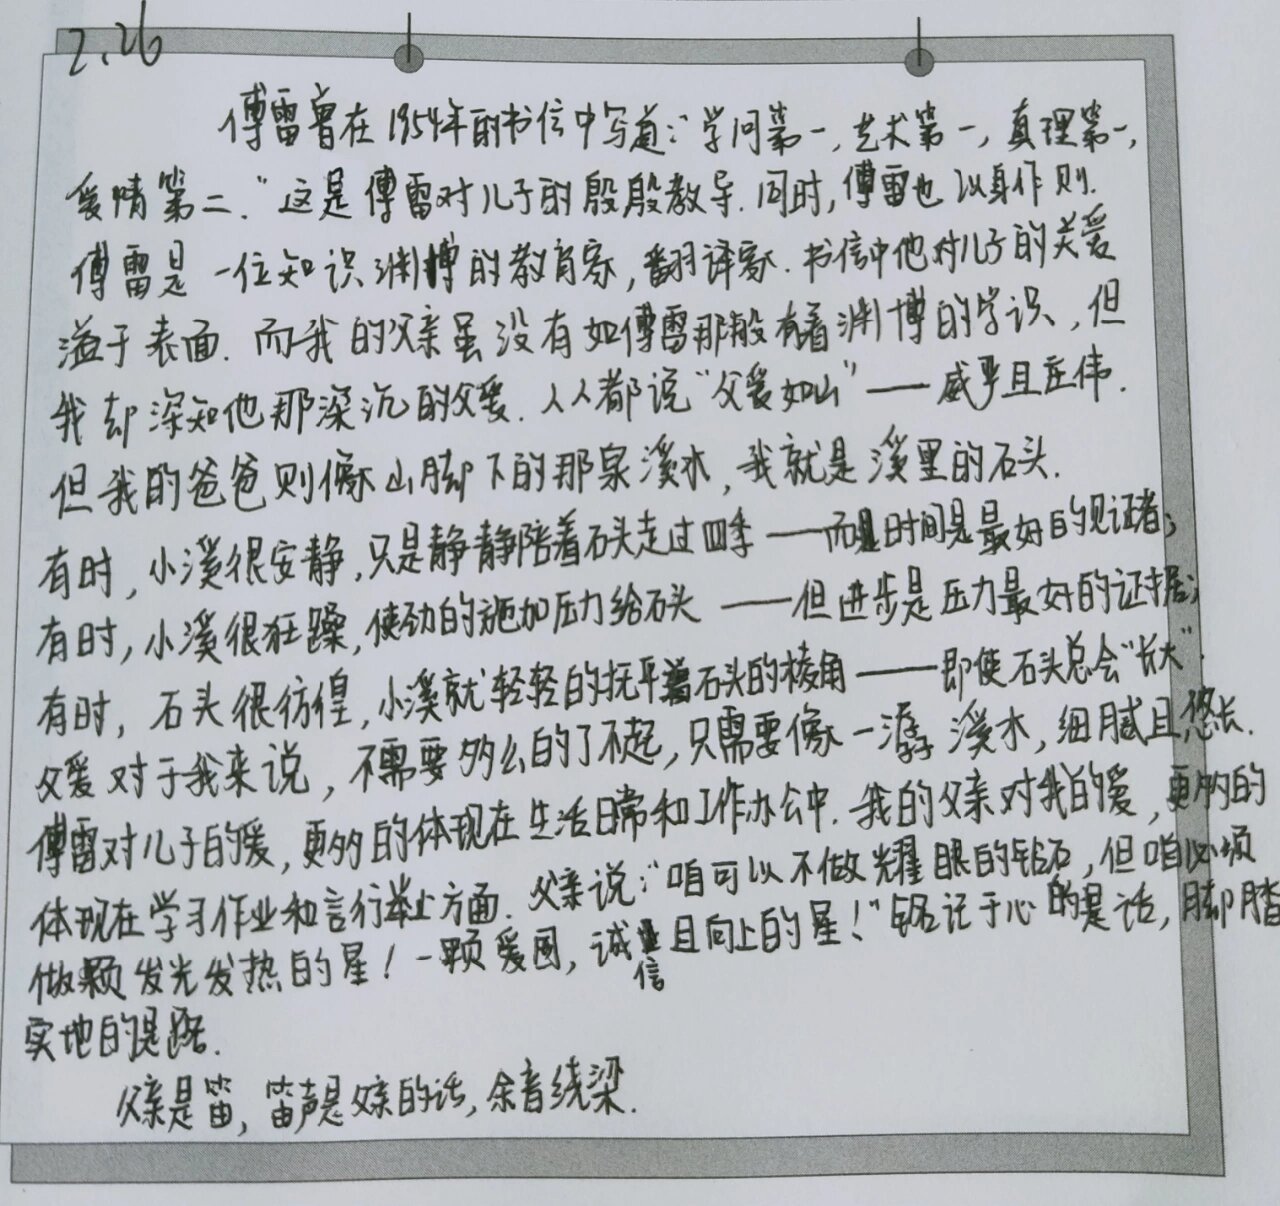 2.26
傅雷曾在1954年的书信中写道:"学问第一,艺术第一,真理第一,
爱情第二."这是傅雷对儿子的殷殷教导.同时,傅雷也以身作则.
傅雷是一位知识渊博的教育家,翻译家.书信中他对儿子的关爱
溢于表面.而我的父亲虽没有如傅雷那般有着渊博的学识,但
我却深知他那深沉的父爱.人人都说"父爱如山"——威严且庄伟.
但我的爸爸则像山脚下的那泉溪水,我就是溪里的石头.
有时,小溪很安静,只是静静陪着石头走过四季——而时间是最好的见证者;
有时,小溪很狂躁,使劲的施加压力给石头——但进步是压力最好的证据;
有时,石头很彷徨,小溪就轻轻的抚平着石头的棱角——即使石头总会"长大".
父爱对于我来说,不需要多么的了不起,只需要像一潺溪水,细腻且悠长.
傅雷对儿子的爱,更多的体现在生活日常和工作办公中.我的父亲对我的爱,更多的
体现在学习作业和言行举止方面.父亲说:"咱可以不做耀眼的钻石,但咱必须
做颗发光发热的星!一颗爱国,诚信且向上的星!"铭记于心的是话,脚踏
实地的是路.
父亲是笛,笛声是父亲的话,余音绕梁.